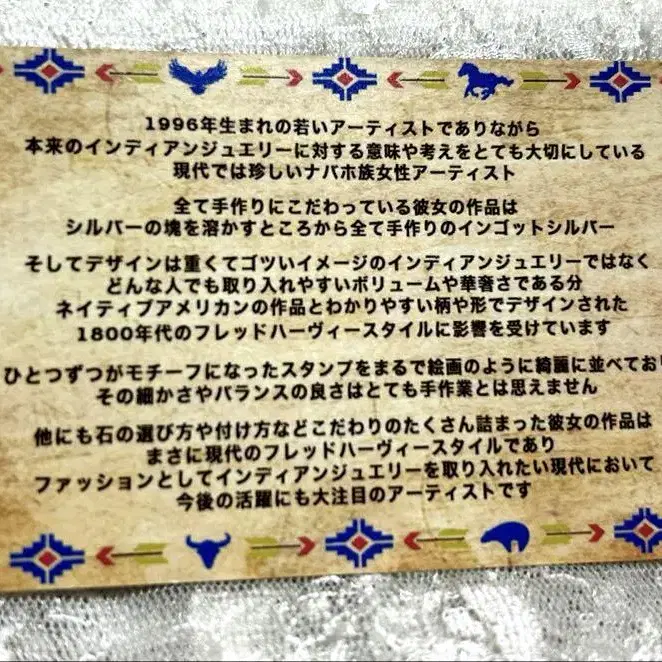 1996年生まれの若いアーティストでありながら
本来のインディアンジュエリーに対する意味や考えをとても大切にしている
現代では珍しいナバホ族女性アーティスト
全て手作りにこだわっている彼女の作品は
シルバーの塊を溶かすところから全て手作りのインゴットシルバー
そしてデザインは重くてゴツいイメージのインディアンジュエリーではなく
どんな人でも取り入れやすいボリュームや華奢さである分
ネイティブアメリカンの作品とわかりやすい柄や形でデザインされた
1800年代のフレッドハーヴィースタイルに影響を受けています
ひとつずつがモチーフになったスタンプをまるで絵画のように綺麗に並べてお
その細かさやバランスの良さはとても手作業とは思えません
他にも石の選び方や付け方などこだわりのたくさん詰まった彼女の作品は
まさに現代のフレッドハーヴィースタイルであり
ファッションとしてインディアンジュエリーを取り入れたい現代において
今後の活躍にも大注目のアーティストです